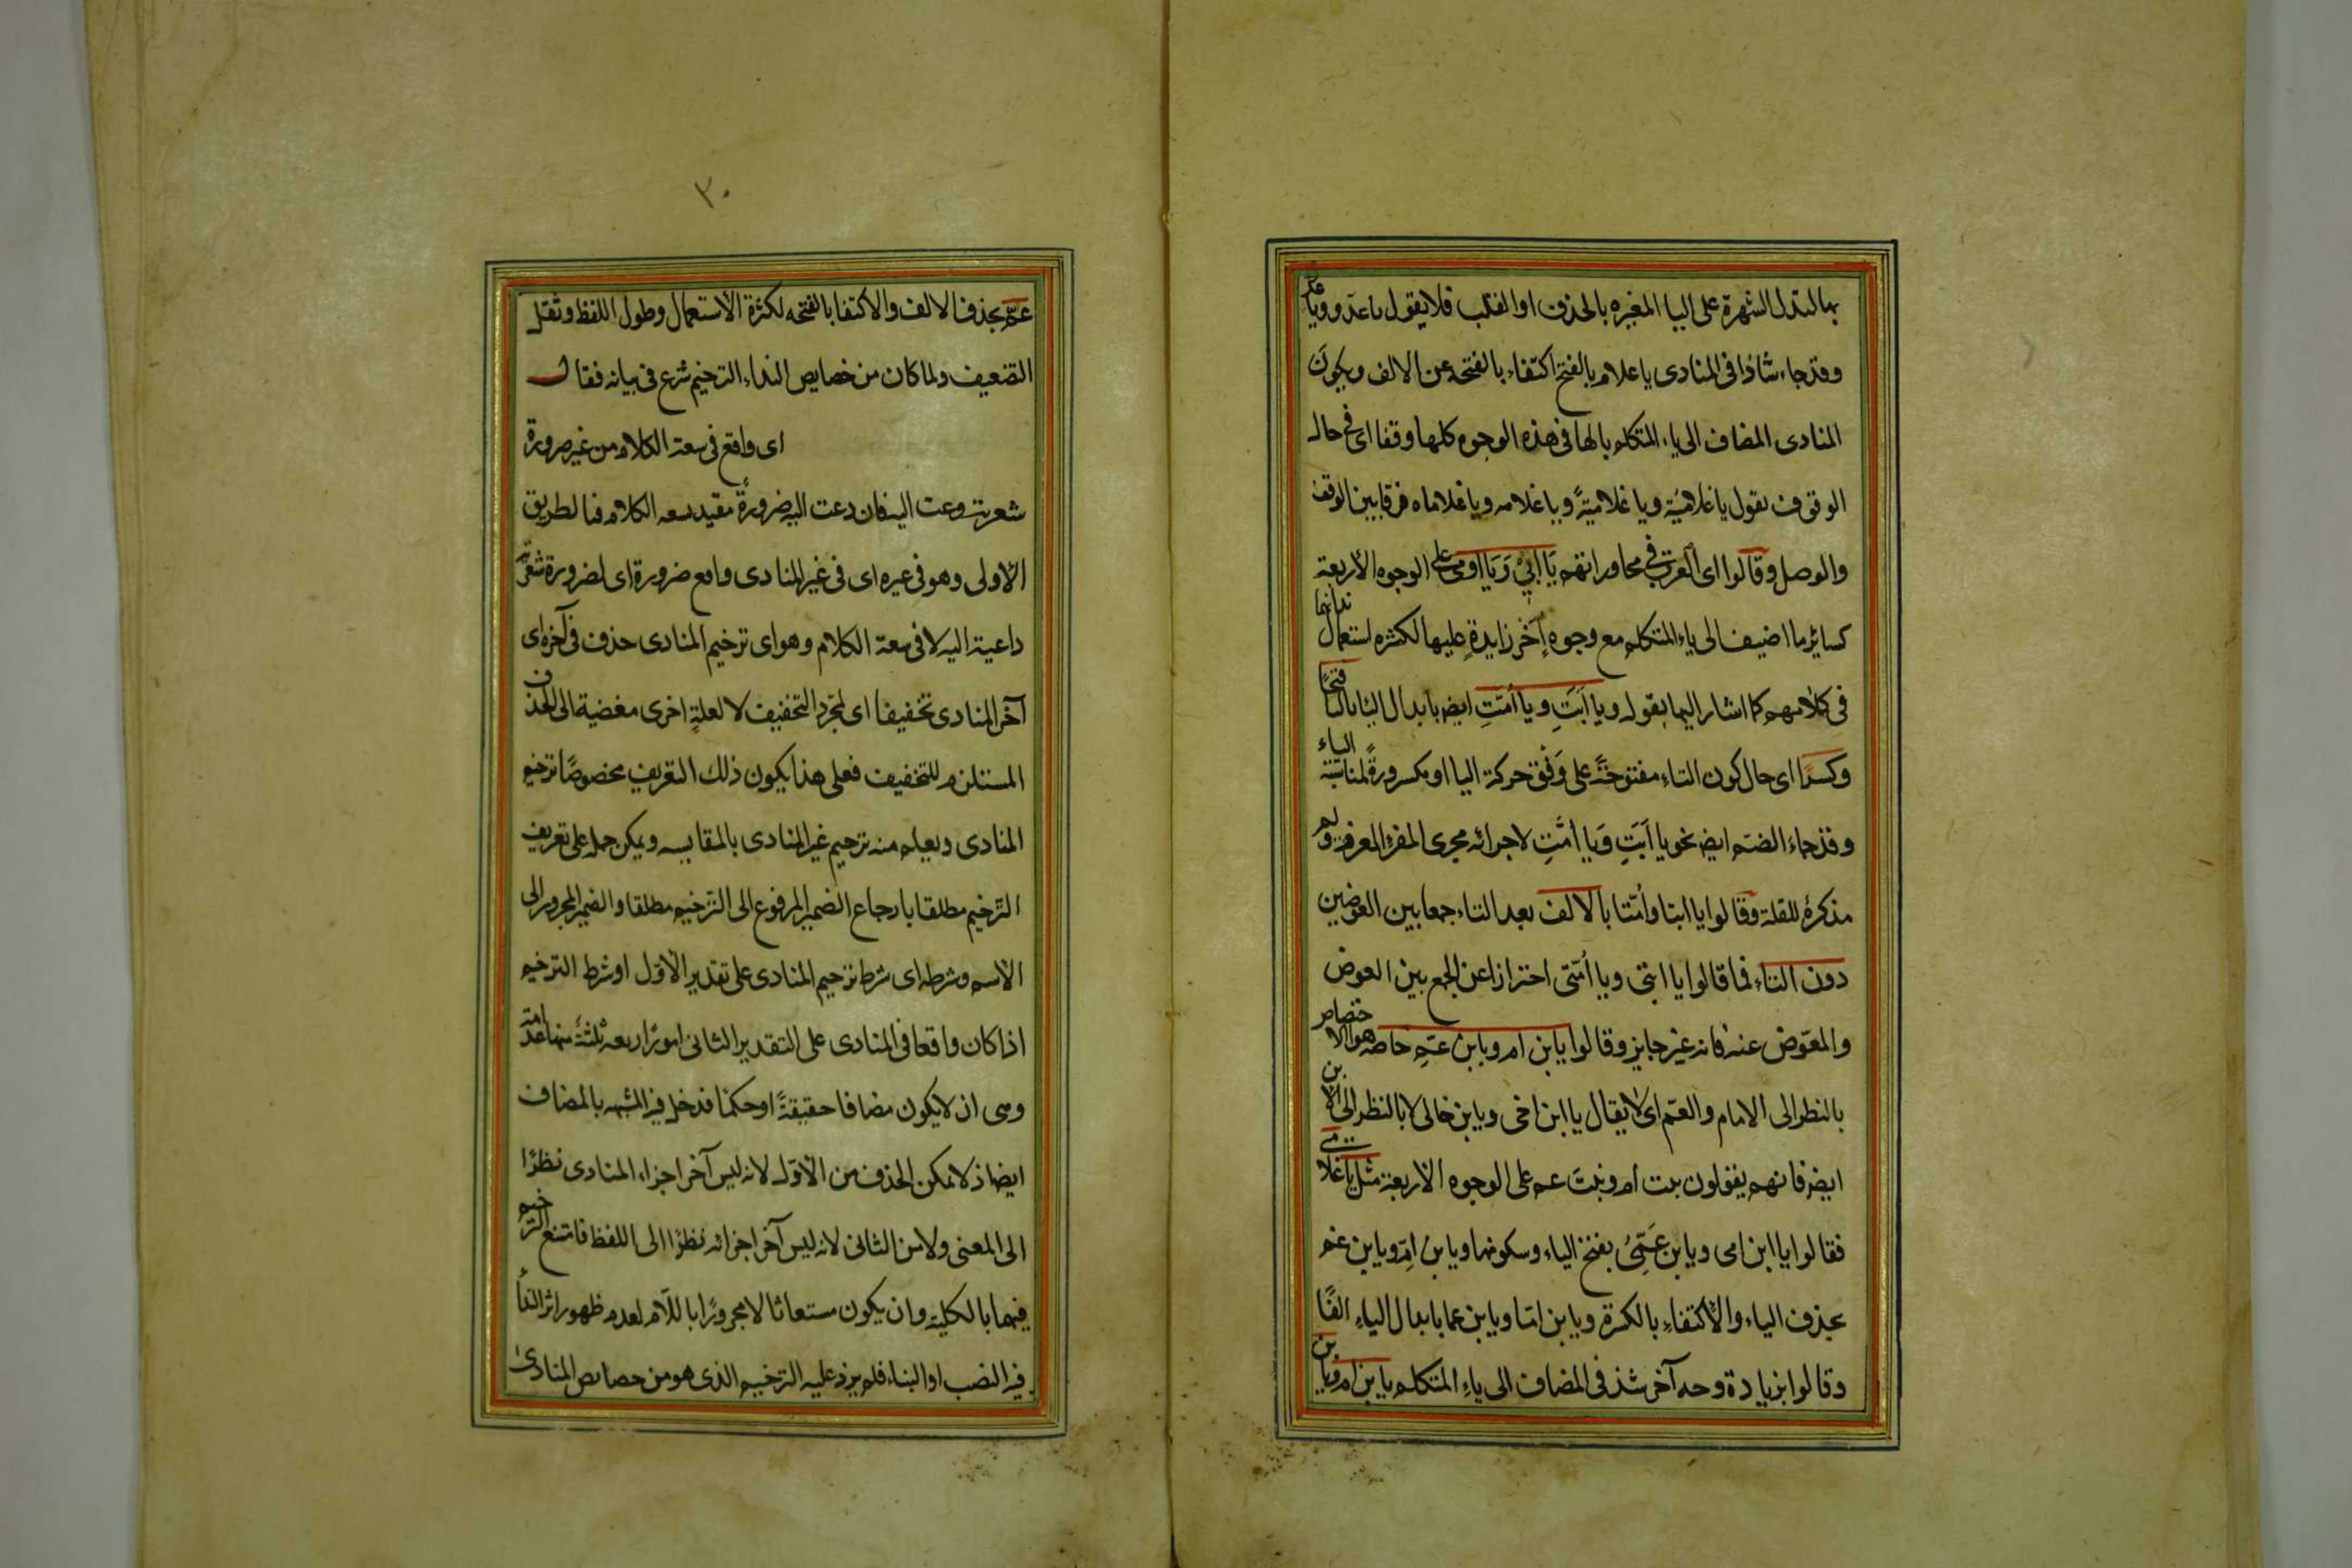 بها لتدل الشهرة على اليا المغيره بالحذف او القلب فلا يقول يا عدو ويا
وقد جاء شاذا فى المنادى يا غلام بالفتح اكتفاء بالفتحة عن الالف ويكون
المنادى المضاف الى ياء المتكلم بالها فى هذه الوجوه كلها وقفا اى فى حال
الوقوف تقول يا غلاميَه ويا غلاميه ويا غلامه ويا غلاماه فرقا بين الوقف
والوصل وقالوا اى العرب فى محاوراتهم يَا ابي وَيَا اومى على الوجوه الاربعة
كسائر ما اضيف الى ياء المتكلم مع وجوهٍ اُخر زايدةٍ عليها لكثره استعمال ندائها
فى كلامهم كما اشار اليها بقوله ويا اَبَتِ ويا اُمّتِ ايض بابدال اليا بالتا فتحًا
وكسرًا اى حال كون التاء مفتوحةً على وَفق حركة اليا او مكسورةً لمناسبة الياء
وقد جاءَ الضم ايض نحو يا اَبَتِ وَيا اُمَّتِ لاجرائه مجرى المفرد المعرفة ولم
يذكره للقلة وقالوا يا ابتا وامّتا بالالف بعد التاء جمعا بين العوضين
دون التاء فما قالوا يا ابتى ويا اُمّتى احترازا عن الجمع بين العوض
والمعوّض عنه فانه غير جايز وقالوا يا بن ام ويا بن عمّ خاصه هو الاختصاص
بالنظر الى الامام والعمّ اى لا يقال يا ابن اخى ويا بن خالى لا بالنظر الى الابن
ايض فانهم يقولون بنت ام وبنت عم على الوجوه الاربعة مثل يا غلامى
فقالوا يا ابن امى ويا بن عَمِّىْ بفتح الياء وسكونها ويا بن امِّ ويا بن عم
بحذف الياء والاكتفاء بالكسرة ويا بن امّا ويا بن عما بابدال الياءِ الفًا
وقالوا بزيادة وجه آخر شذ فى المضاف الى ياءِ المتكلم يا بن ام ويا بن
٣٠
عمّ بحذف الالف والاكتفا بالفتحه لكثرة الاستعمال وطول اللفظ وثقل
التضعيف ولما كان من خصايص النداء الترخيم شرع فى بيانه فقال
اى واقع فى سعة الكلام من غير ضرورة
شعرية دعت اليه فان دعت اليه ضرورةٌ مقيد بسعه الكلام فبالطريق
الاولى وهو فى غيره اى فى غير المنادى واقع ضرورة اى لضرورة شعرية
داعية اليه لا فى سعة الكلام وهو اى ترخيم المنادى حذف فى آخره اى
آخر المنادى تخفيفا اى لمجرد التخفيف لا لعلةٍ اخرى مفضية الى الحذف
المستلزم للتخفيف فعلى هذا يكون ذلك التعريف مخصوصًا بترخيم
المنادى ويعلم منه ترخيم غير المنادى بالمقايسه ويمكن حمله على تعريف
الترخيم مطلقا بارجاع الضمير المرفوع الى الترخيم مطلقا والضمير المجرور الى
الاسم وشرطه اى شرط ترخيم المنادى على تقدير الاوّل او شرط الترخيم
اذا كان واقعا فى المنادى على التقدير الثانى امورٌ اربعه ثلثة منها عدمية
وهى ان لا يكون مضافا حقيقةً او حكمًا فدخل فيه المشبه بالمضاف
ايضا اذ لا يمكن الحذف من الاوّل لانه ليس آخر اجزاء المنادى نظرًا
الى المعنى ولا من الثانى لانه ليس آخر اجزائه نظرًا الى اللفظ فامتنع الترخيم
فيهما بالكلية وان يكون مستغاثا لا مجرورًا باللام لعدم ظهور اثر الندا
فيه النصب او البناء فلم يرد عليه الترخيم الذى هو من خصايص المنادى